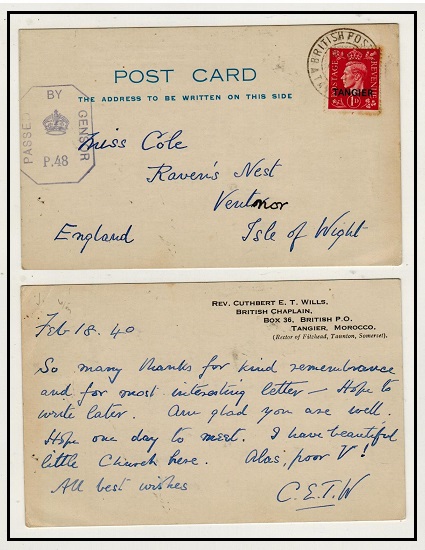 BRITISH POST
POSTAGE REVENUE
TANGIER
1D
POST CARD
THE ADDRESS TO BE WRITTEN ON THIS SIDE
PASSED BY CENSOR
P.48
Miss Cole
Raven's Nest
Ventnor
England Isle of Wight
REV. CUTHBERT E. T. WILLS,
BRITISH CHAPLAIN,
BOX 36, BRITISH P.O.
TANGIER, MOROCCO.
(Rector of Fitzhead, Taunton, Somerset).
Feb 18. 40
So many thanks for kind remembrance
and for most interesting letter – Hope to
write later. Am glad you are well.
Hope one day to meet. I have beautiful
little Church here. Alas, poor V!
All best wishes
C.E.T.W